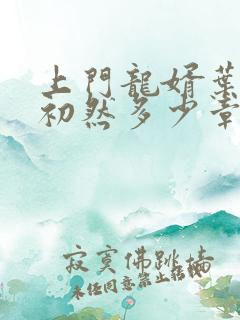 上門龍婿葉
初然多少章
寂寞佛跳墙
未经同意禁止转载